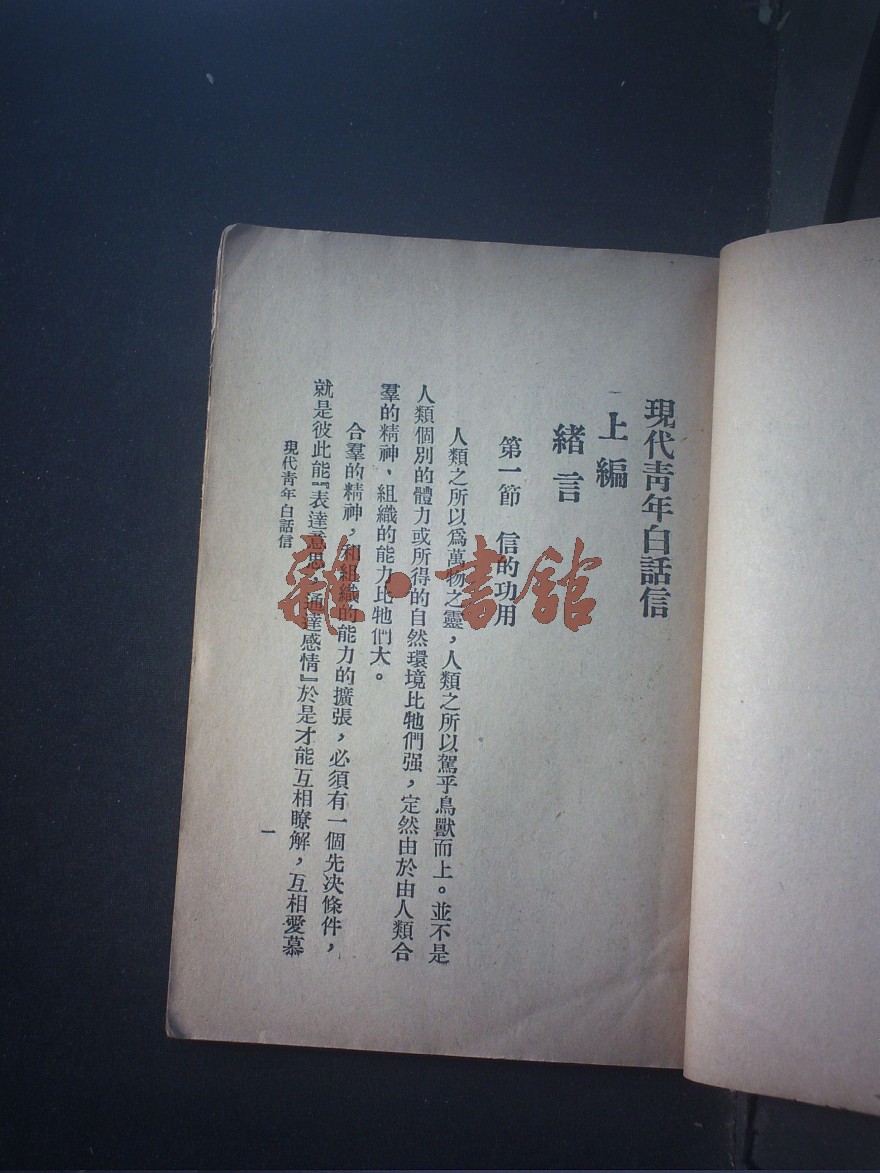 現代青年白話信
上編
緒言
第一節　信的功用
人類之所以爲萬物之靈，人類之所以駕乎鳥獸而上。並不是
人類個別的體力或所得的自然環境比牠們强，定然由於由人類合
羣的精神、組織的能力比牠們大。
合羣的精神，和組織的能力的擴張，必須有一個先決條件，
就是彼此能『表達意思，通達感情』於是才能互相瞭解，互相愛慕
現代青年白話信
一
雜·書館